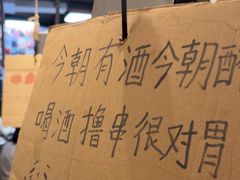 今朝有酒今朝醉
喝酒撸串很对胃